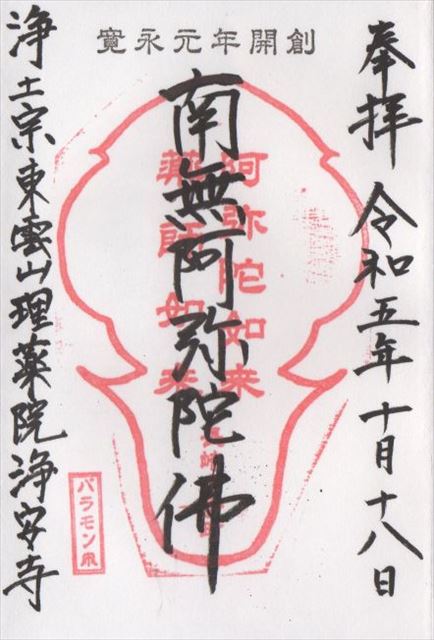 寛永元年開創
奉拝 令和五年十月十八日
南無阿弥陀佛
阿弥陀如来
薬師如来
浄土宗東雲山理薬院浄安寺
パラモン凧